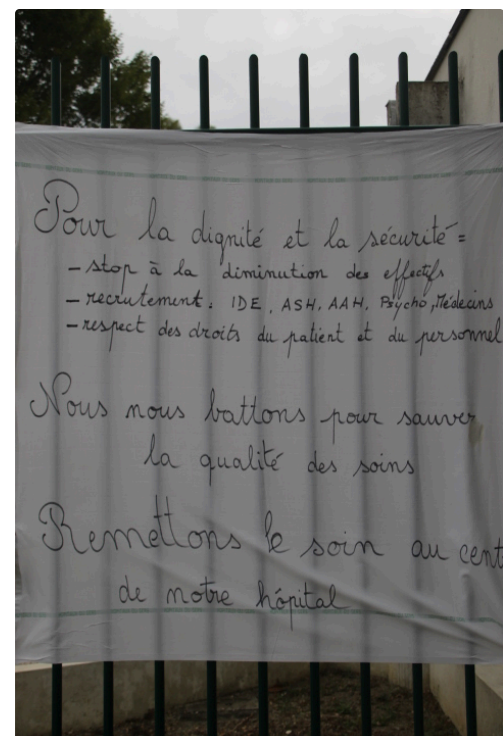 Pour la dignité et la sécurité =
- stop à la diminution des effectifs
- recrutement : IDE, ASH, AAH, Psycho, Médecins
- respect des droits du patient et du personnel
Nous nous battons pour sauver
la qualité des soins
Remettons le soin au cent
de notre hôpital